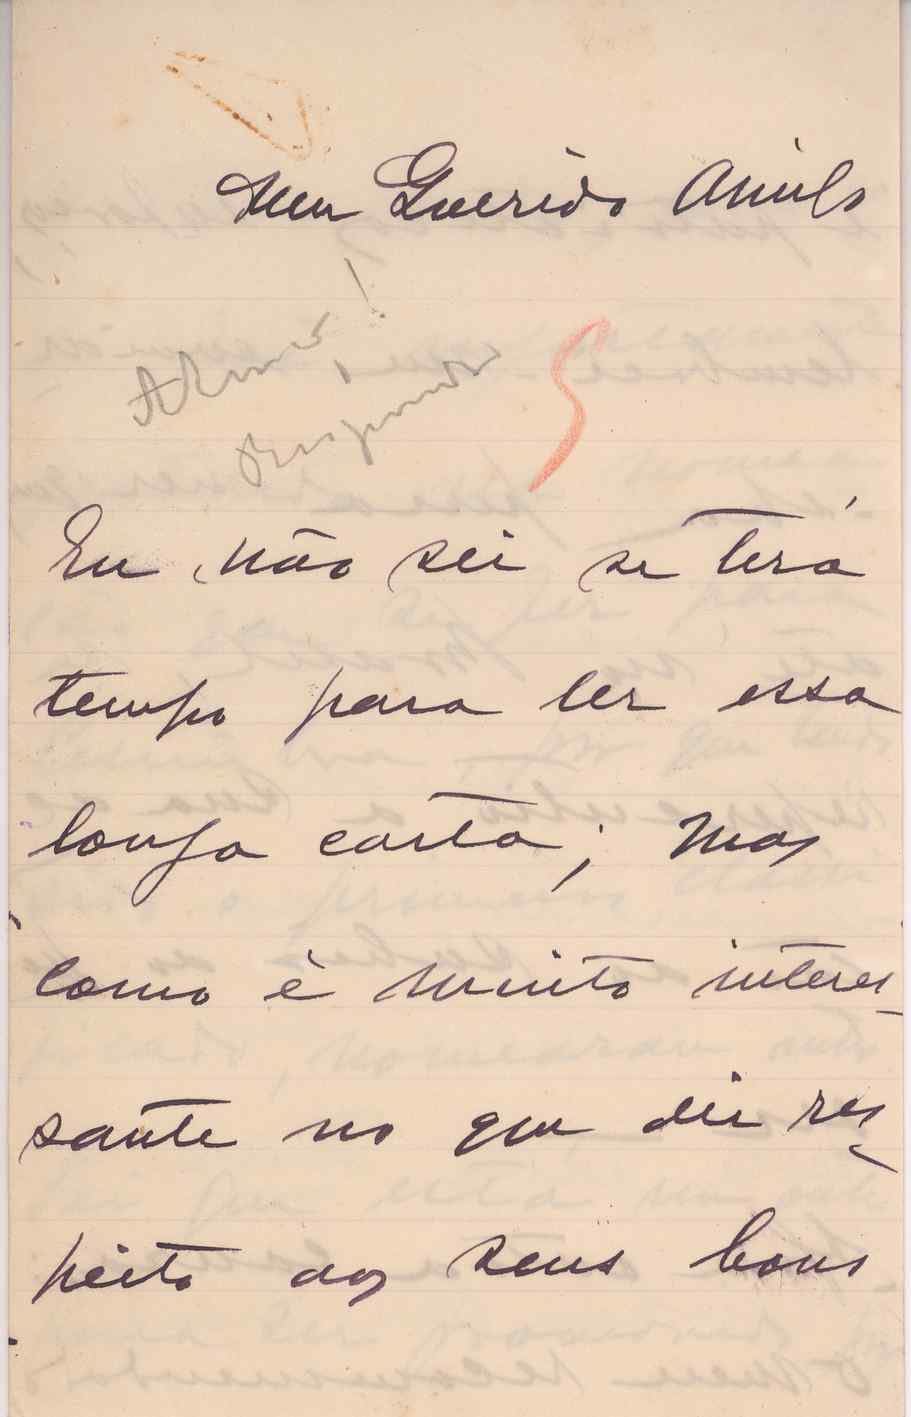 Meu Querido Amigo
Responda
Eu não sei se terá
tempo para ler essa
longa carta; mas
como è muito interes-
sante no que diz res-
peito aos seus bons